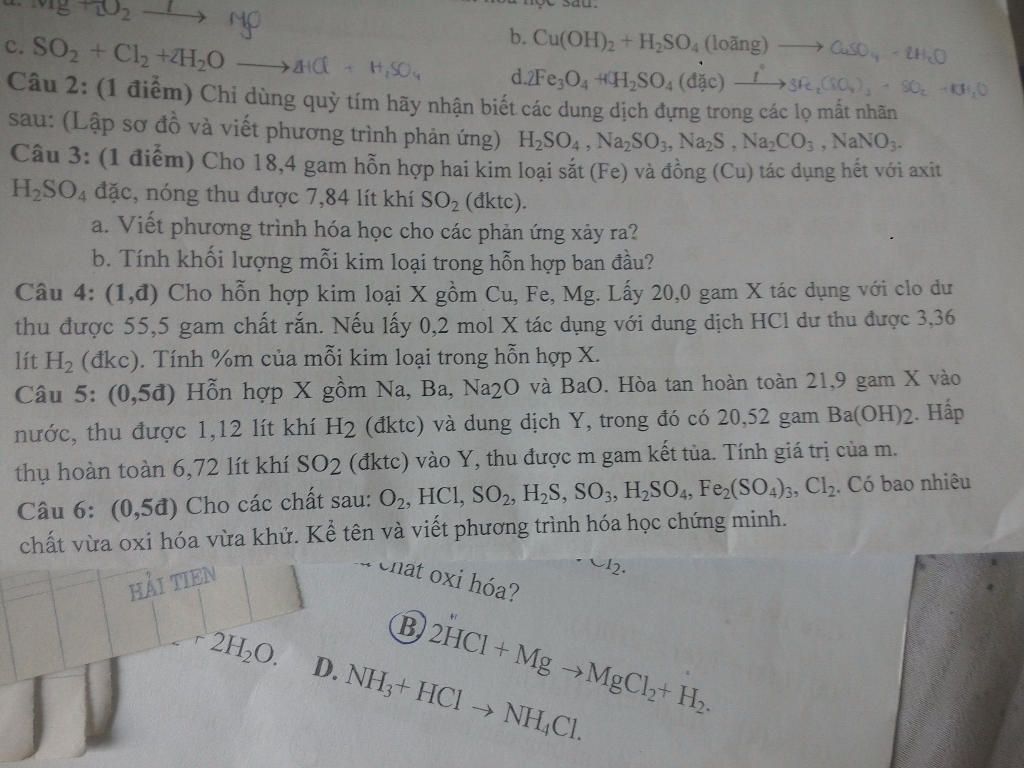 a. Mg + 1/2O₂ —t→ MgO
học sau:
b. Cu(OH)₂ + H₂SO₄ (loãng) → CuSO₄ + 2H₂O
c. SO₂ + Cl₂ +2H₂O → 2HCl + H₂SO₄
d.2Fe₃O₄ +10H₂SO₄ (đặc) —t°→ 3Fe₂(SO₄)₃ + SO₂ +10H₂O
Câu 2: (1 điểm) Chỉ dùng quỳ tím hãy nhận biết các dung dịch đựng trong các lọ mất nhãn
sau: (Lập sơ đồ và viết phương trình phản ứng) H₂SO₄ , Na₂SO₃, Na₂S , Na₂CO₃ , NaNO₃.
Câu 3: (1 điểm) Cho 18,4 gam hỗn hợp hai kim loại sắt (Fe) và đồng (Cu) tác dụng hết với axit
H₂SO₄ đặc, nóng thu được 7,84 lít khí SO₂ (đktc).
a. Viết phương trình hóa học cho các phản ứng xảy ra?
b. Tính khối lượng mỗi kim loại trong hỗn hợp ban đầu?
Câu 4: (1,đ) Cho hỗn hợp kim loại X gồm Cu, Fe, Mg. Lấy 20,0 gam X tác dụng với clo dư
thu được 55,5 gam chất rắn. Nếu lấy 0,2 mol X tác dụng với dung dịch HCl dư thu được 3,36
lít H₂ (đkc). Tính %m của mỗi kim loại trong hỗn hợp X.
Câu 5: (0,5đ) Hỗn hợp X gồm Na, Ba, Na2O và BaO. Hòa tan hoàn toàn 21,9 gam X vào
nước, thu được 1,12 lít khí H2 (đktc) và dung dịch Y, trong đó có 20,52 gam Ba(OH)2. Hấp
thụ hoàn toàn 6,72 lít khí SO2 (đktc) vào Y, thu được m gam kết tủa. Tính giá trị của m.
Câu 6: (0,5đ) Cho các chất sau: O₂, HCl, SO₂, H₂S, SO₃, H₂SO₄, Fe₂(SO₄)₃, Cl₂. Có bao nhiêu
chất vừa oxi hóa vừa khử. Kể tên và viết phương trình hóa học chứng minh.
Cl₂.
chất oxi hóa?
HẢI TIEN
B. 2HCl + Mg → MgCl₂+ H₂.
+ 2H₂O.
D. NH₃+ HCl → NH₄Cl.